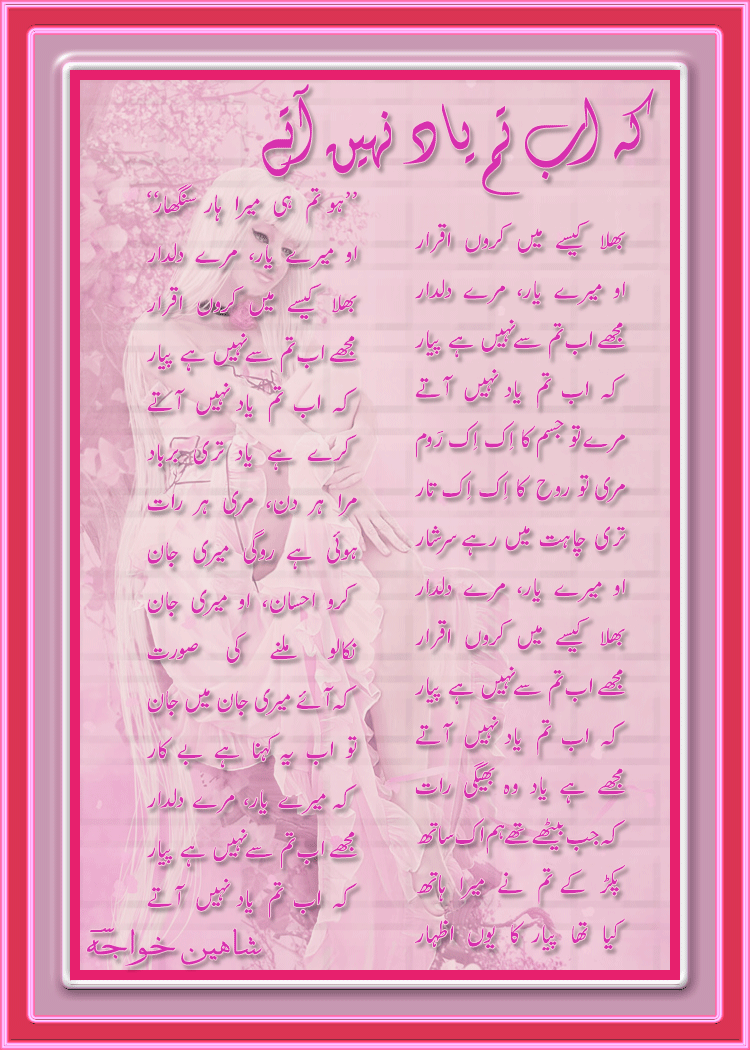 کہ اب تم یاد نہیں آتے
بھلا کیسے میں کروں اقرار
او میرے یار، مرے دلدار
مجھے اب تم سے نہیں ہے پیار
کہ اب تم یاد نہیں آتے
مرے تو جسم کا اِک اِک رَوم
مری تو روح کا اِک اِک تار
تری چاہت میں رہے سرشار
او میرے یار، مرے دلدار
بھلا کیسے میں کروں اقرار
مجھے اب تم سے نہیں ہے پیار
کہ اب تم یاد نہیں آتے
مجھے ہے یاد وہ بھیگی رات
کہ جب بیٹھے تھے ہم اک ساتھ
پکڑ کے تم نے میرا ہاتھ
کیا تھا پیار کا یوں اظہار
”ہو تم ہی میرا ہار سنگھار“
او میرے یار، مرے دلدار
بھلا کیسے میں کروں اقرار
مجھے اب تم سے نہیں ہے پیار
کہ اب تم یاد نہیں آتے
کرے ہے یاد تری برباد
مرا ہر دن، مری ہر رات
ہوئی ہے روگی میری جان
کرو احسان، او میری جان
نکالو ملنے کی صورت
کہ آئے میری جان میں جان
تو اب یہ کہنا ہے بے کار
کہ میرے یار، مرے دلدار
مجھے اب تم سے نہیں ہے پیار
کہ اب تم یاد نہیں آتے
شاہین خواجہ